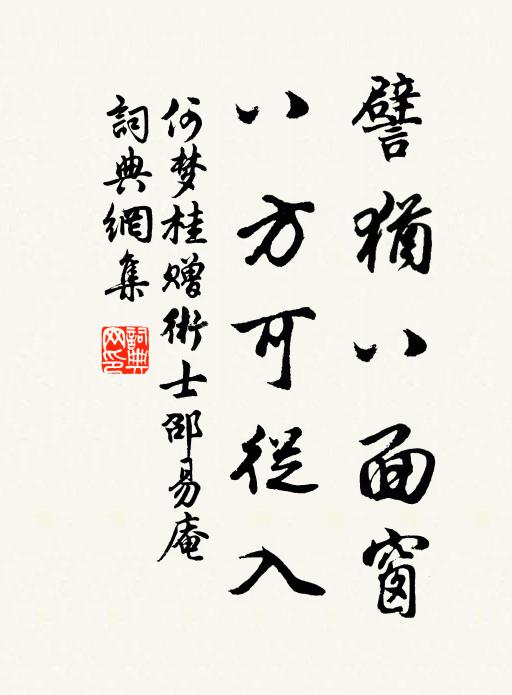 譬猶八面窗
八方可從入
何梦桂赠術士邵易庵
詞典網集
詞典网印